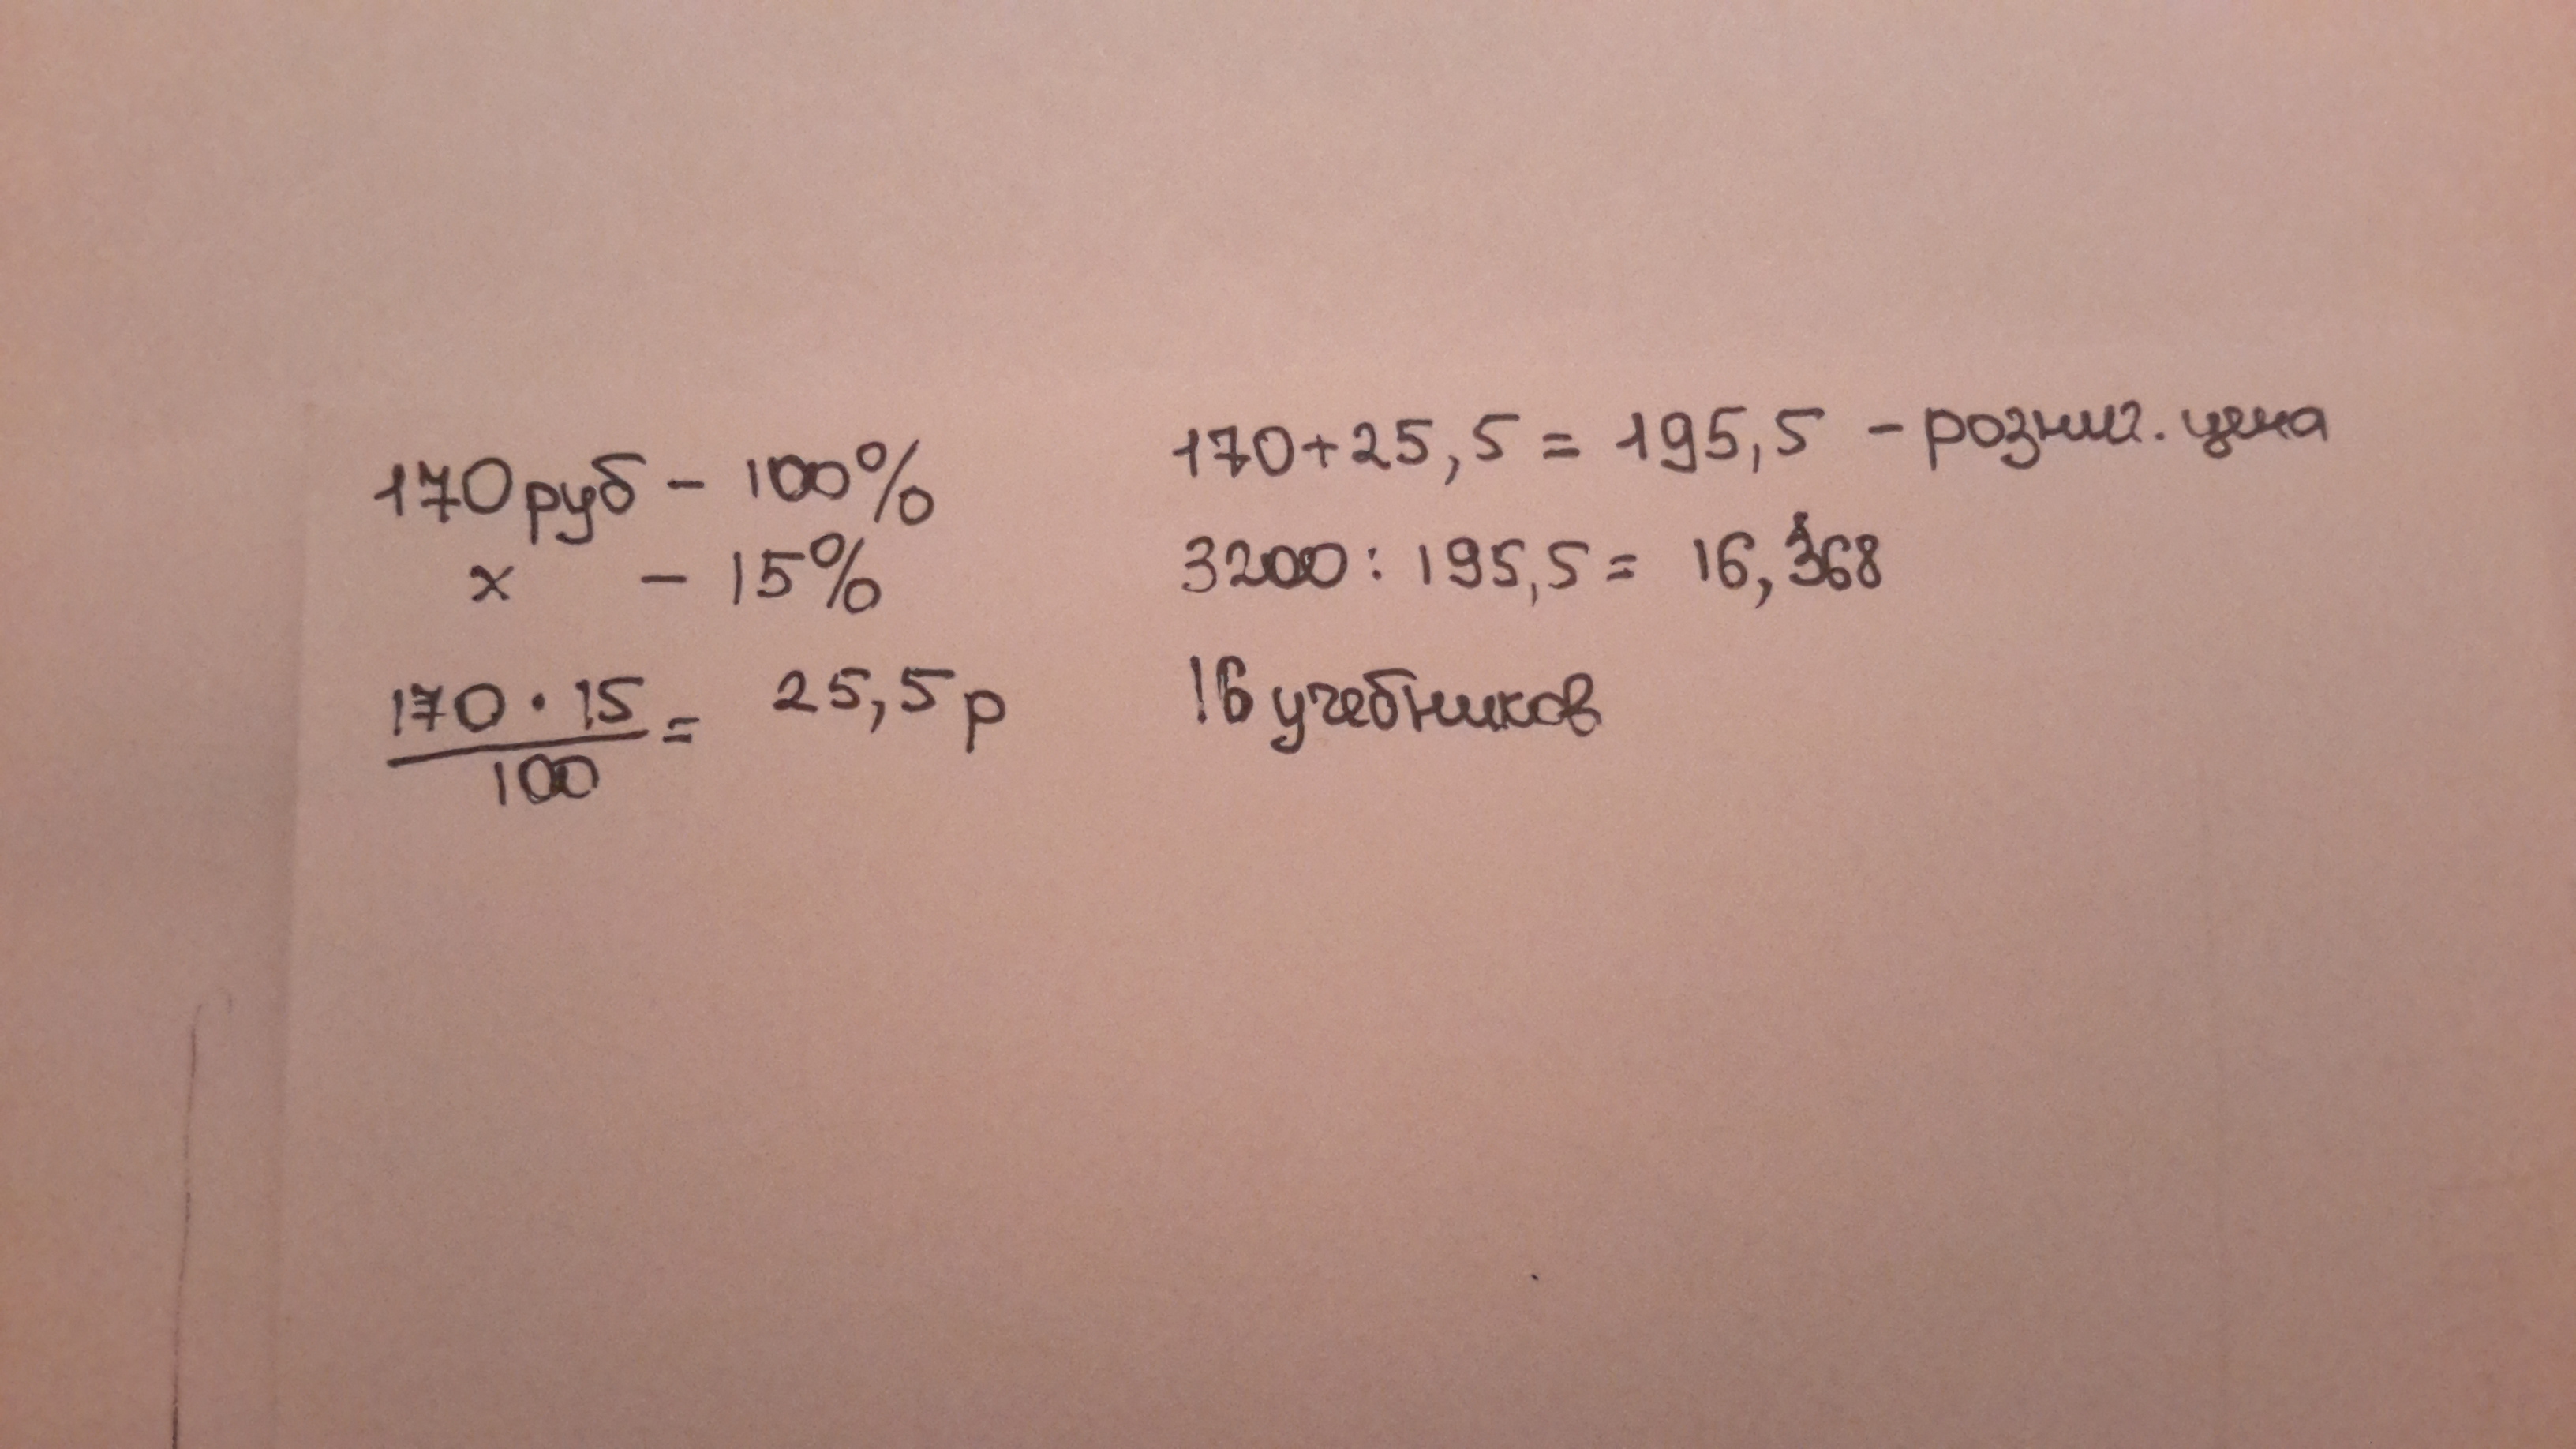 170 руб - 100%
x - 15%
170 · 15
100
= 25,5 р
170+25,5 = 195,5 - рознич. цена
3200 : 195,5 = 16,368
16 учебников